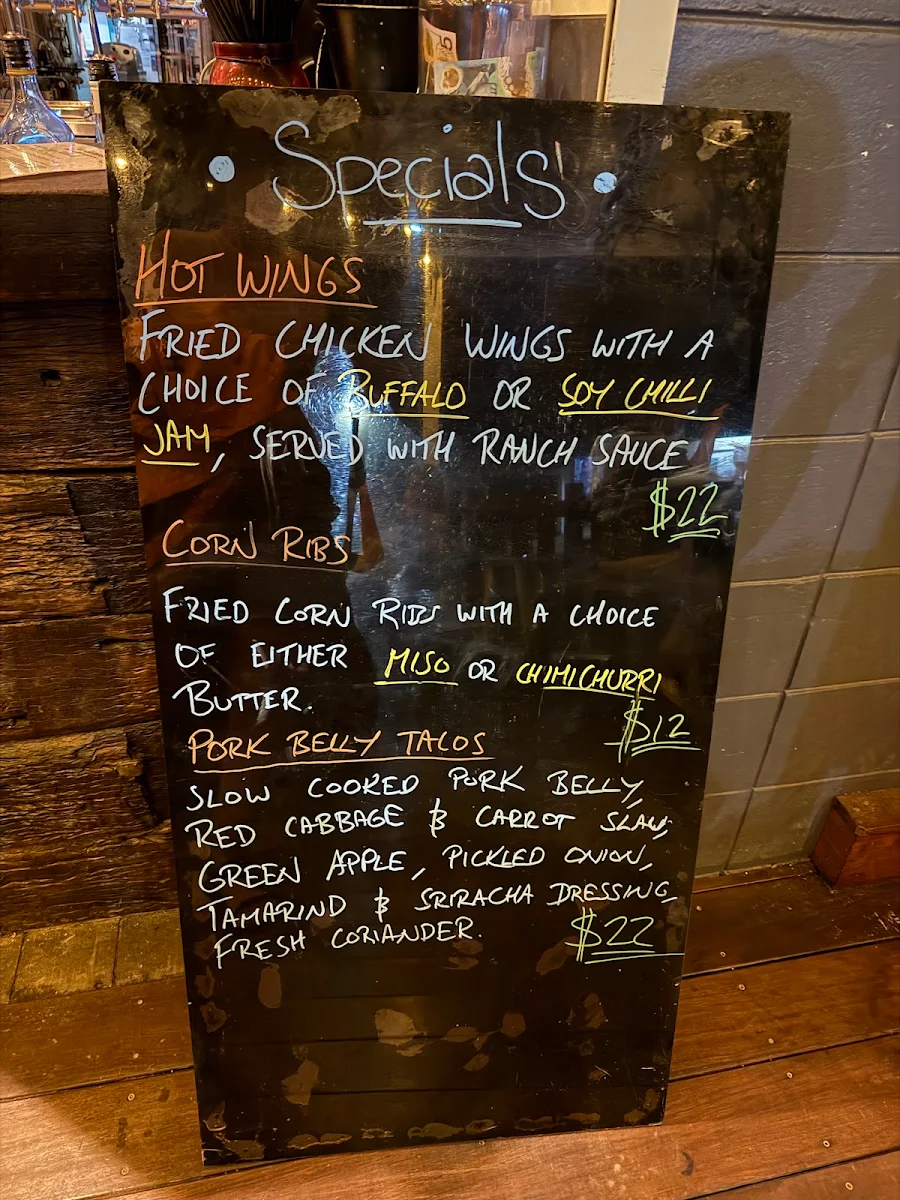 • Specials •
HOT WINGS
FRIED CHICKEN WINGS WITH A
CHOICE OF BUFFALO OR SOY CHILLI
JAM, SERVED WITH RANCH SAUCE
$22
CORN RIBS
FRIED CORN RIBS WITH A CHOICE
OF EITHER MISO OR CHIMICHURRI
BUTTER.
$12
PORK BELLY TACOS
SLOW COOKED PORK BELLY,
RED CABBAGE & CARROT SLAW,
GREEN APPLE, PICKLED ONION,
TAMARIND & SRIRACHA DRESSING,
FRESH CORIANDER.
$22